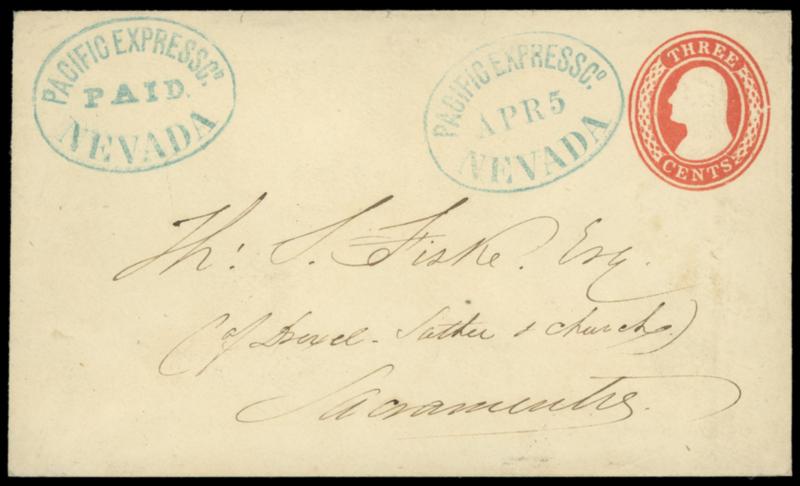 PACIFIC EXPRESS Cº.
PAID.
NEVADA
PACIFIC EXPRESS Cº.
APR 5
NEVADA
THREE
CENTS
Th: S. Fiske. Esq.
(of Drexel - Sather & Church.)
Sacramento.